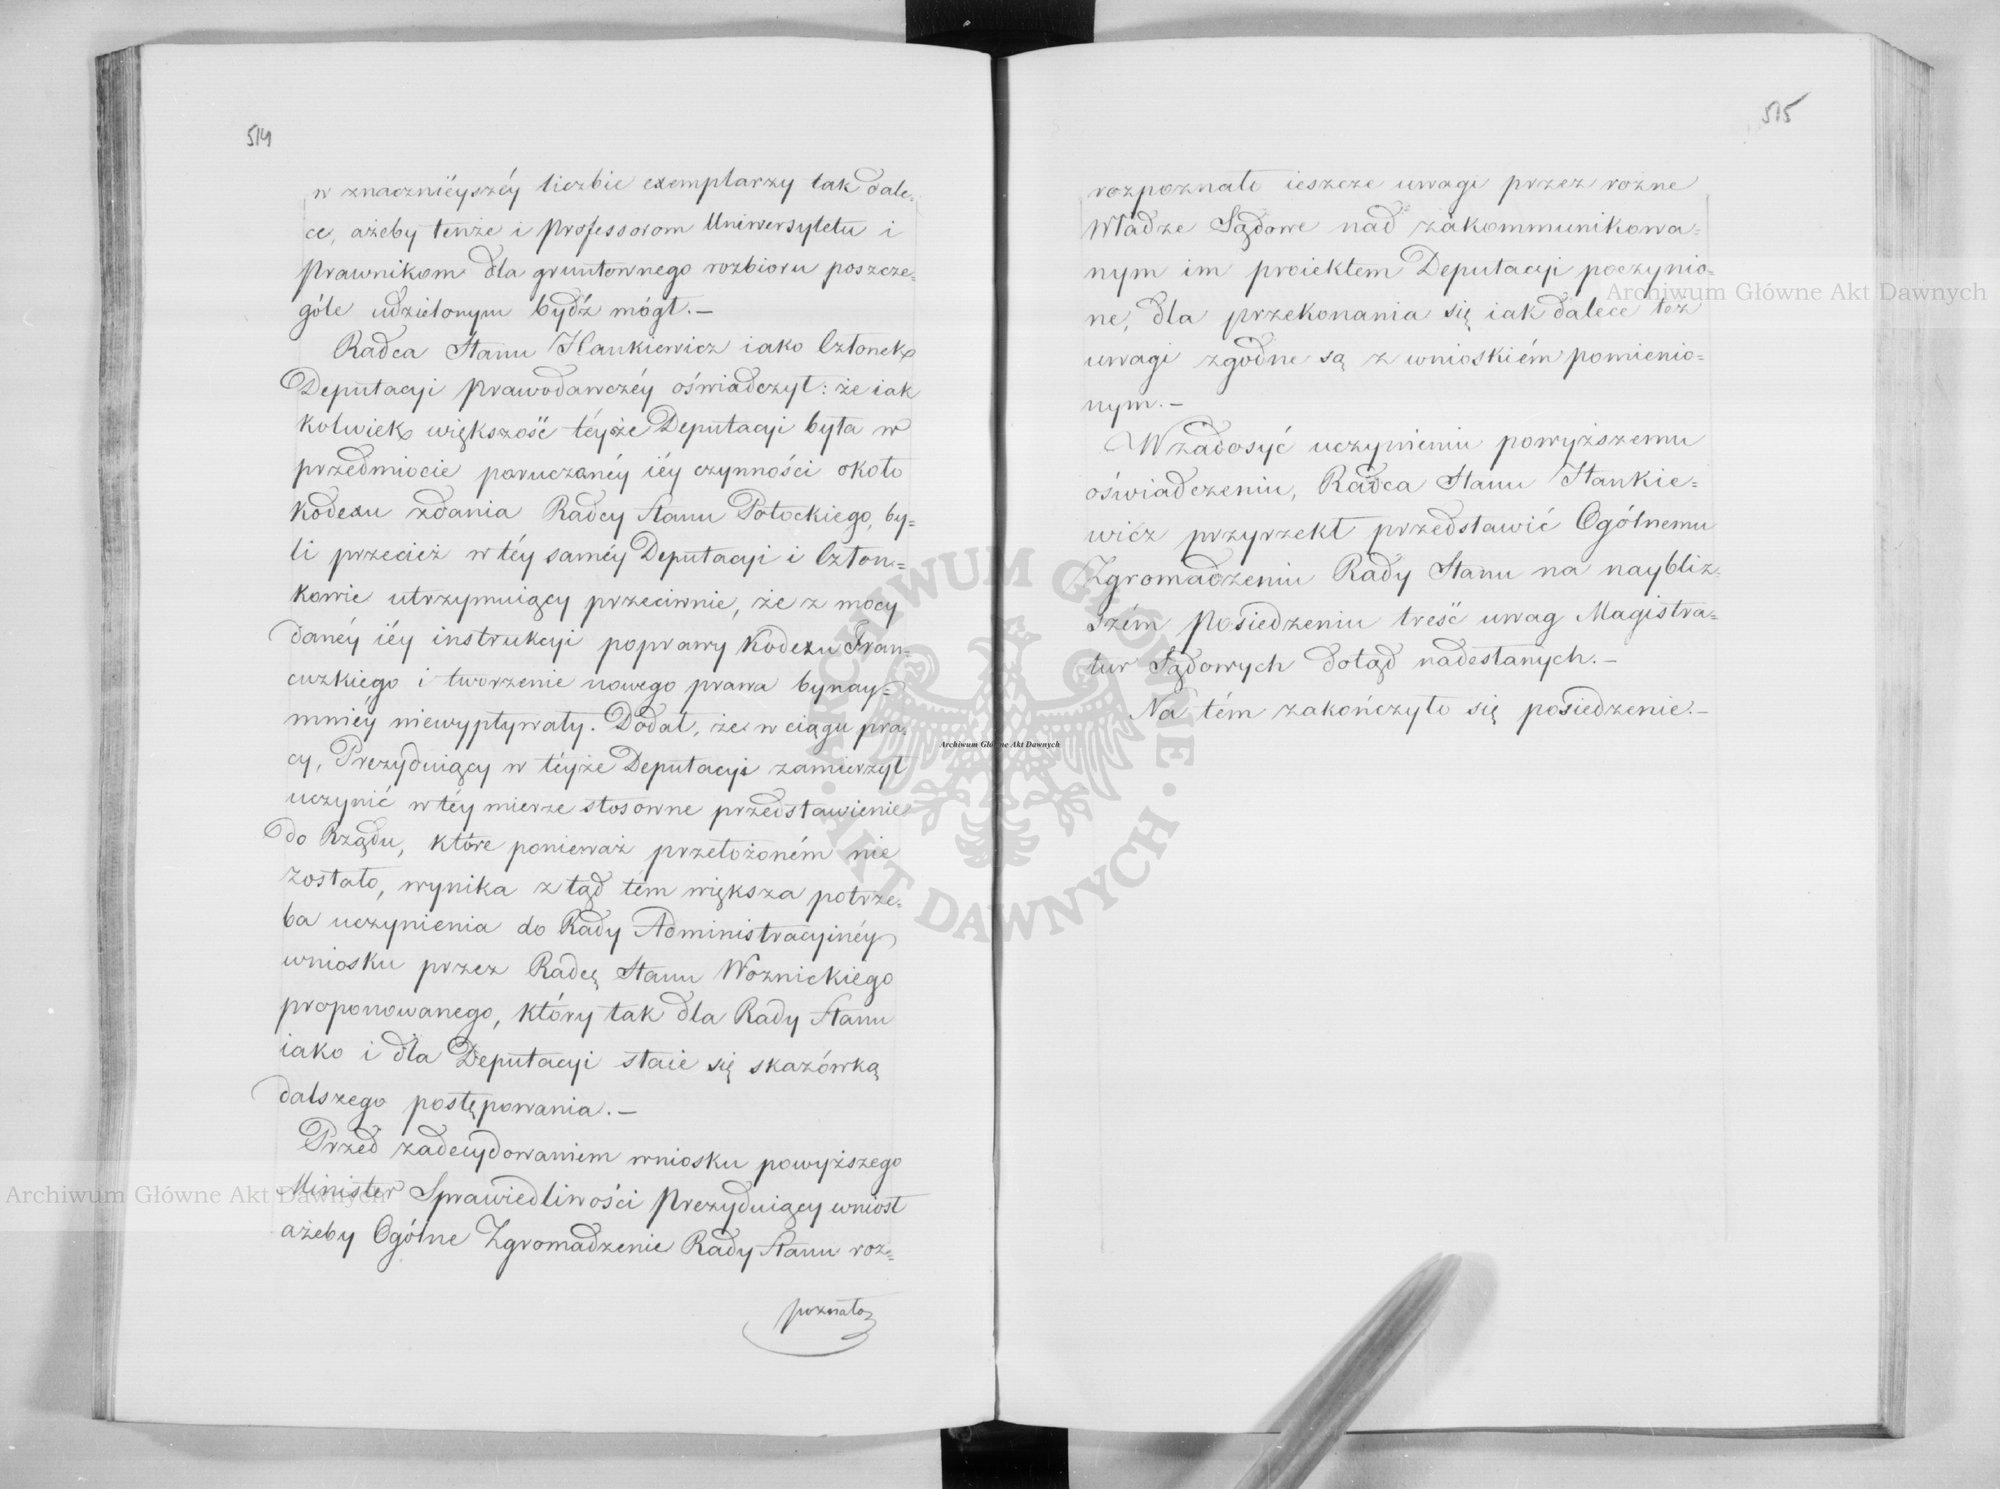 514
w znacznieyszéy liczbie exemplarzy tak dale-
ce, ażeby tenże i Professorom Uniwersytetu i
Prawnikom dla gruntownego rozbioru poszcze-
góle udzielonym bydź mógł.—
Radca Stanu Hankiewicz iako Członek
Deputacyi Prawodawczéy oświadczył: że iak
kolwiek większość téyże Deputacyi była w
przedmiocie poruczonéy iéy czynności około
Kodexu zdania Radcy Stanu Potockiego, by-
li przecież w téy saméy Deputacyi i Człon=
kowie utrzymuiący przeciwnie, że z mocy
danéy iéy instrukcyi poprawy Kodexu Fran-
cuzkiego i tworzenie nowego prawa bynay=
mniéy niewypływały. Dodał, że w ciągu pra-
cy, Prezyduiący w téyże Deputacyi zamierzył
uczynić w téy mierze stosowne przedstawienie
do Rządu, które ponieważ przełożoném nie
zostało, wynika z tąd tém większa potrze-
ba uczynienia do Rady Administracyinéy
wniosku przez Radcę Stanu Woznickiego
proponowanego, który tak dla Rady Stanu
iako i dla Deputacyi staie się skazówką
dalszego postępowania.—
Przed zadecydowaniem wniosku powyższego
Minister Sprawiedliwości Prezyduiący wniósł
ażeby Ogólne Zgromadzenie Rady Stanu roz=
poznało
515
rozpoznało ieszcze uwagi przez rożne
Władze Sądowe nad zakommunikowa=
nym im proiektem Deputacyi poczynio=
ne, dla przekonania się iak dalece też
uwagi zgodne są z wnioskiém pomienio=
nym.—
W zadosyć uczynieniu powyższemu
oświadczeniu, Radca Stanu Hankie=
wicz przyrzekł przedstawić Ogólnemu
Zgromadzeniu Rady Stanu na naybliz-
szém Posiedzeniu treść uwag Magistra=
tur Sądowych dotąd nadesłanych.—
Na tém zakończyło się posiedzenie.—
Archiwum Główne Akt Dawnych
Archiwum Główne Akt Dawnych
Archiwum Główne Akt Dawnych
ARCHIWUM GŁÓWNE AKT DAWNYCH